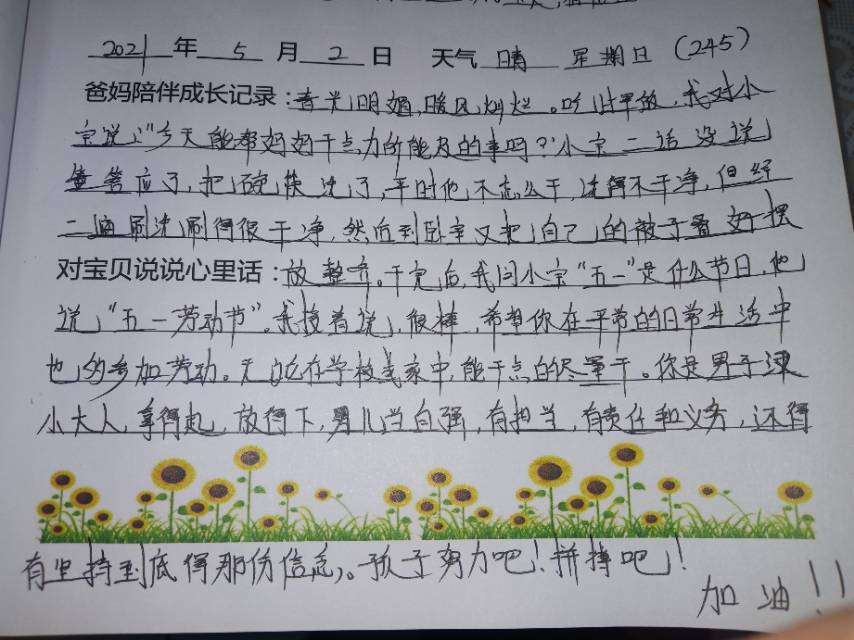 2021 年 5 月 2 日 天气 晴 星期日 (245)
爸妈陪伴成长记录:春光明媚,暖风灿烂。吃过早饭,我对小
宗说:"今天能帮妈妈干点力所能及的事吗?"小宗二话没说
答应了,把碗筷洗了,平时他不怎么干,洗得不干净,但经
二油刷洗刷得很干净,然后到卧室又把自己的被子叠好摆
对宝贝说说心里话:放整齐。干完后,我问小宗"五一"是什么节日,他
说"五一劳动节"。我接着说,很棒,希望你在平常的日常生活中
也的参加劳动。无论在学校或家中,能干点的尽量干。你是男子汉
小大人,拿得起,放得下,男儿当自强,有担当,有责任和义务,还得
有坚持到底得那份信念。孩子努力吧!拼搏吧!
加油!!